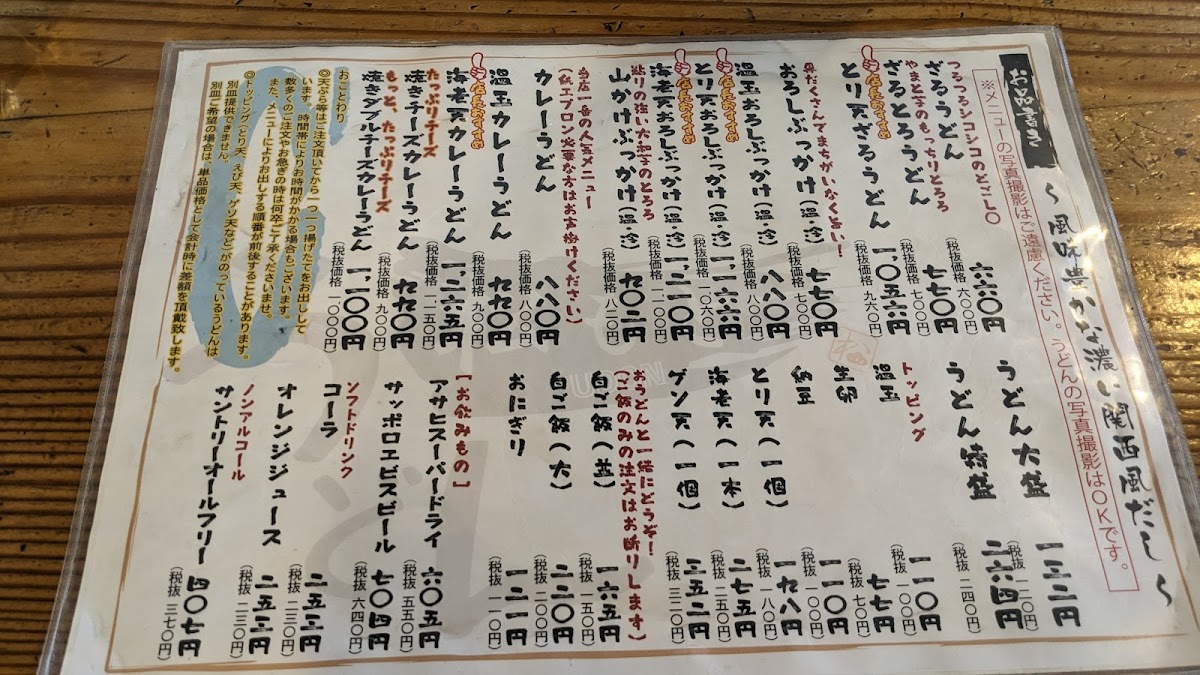 お品書き
～風味豊かな濃い関西風だし～
※メニューの写真撮影はご遠慮ください。うどんの写真撮影はOKです。
つるつるシコシコのどごし〇
ざるうどん 六六〇円
(税抜価格 六〇〇円)
やまと芋のもっちりとろろ
ざるとろうどん 七七〇円
(税抜価格 七〇〇円)
店長おすすめ
とり天ざるうどん 一、〇五六円
(税抜価格 九六〇円)
具だくさんでまちがいなく旨い!
おろしぶっかけ(温・冷) 七七〇円
(税抜価格 七〇〇円)
温玉おろしぶっかけ(温・冷) 八八〇円
(税抜価格 八〇〇円)
店長おすすめ
とり天おろしぶっかけ(温・冷) 一、一六六円
(税抜価格 一、〇六〇円)
店長おすすめ
海老天おろしぶっかけ(温・冷) 一、二一〇円
(税抜価格 一、一〇〇円)
粘りの強い大和芋のとろろ
山かけぶっかけ(温・冷) 九〇二円
(税抜価格 八二〇円)
当店一番の人気メニュー
(紙エプロン必要な方はお声掛けください)
カレーうどん 八八〇円
(税抜価格 八〇〇円)
温玉カレーうどん 九九〇円
(税抜価格 九〇〇円)
店長おすすめ
海老天カレーうどん 一、二六五円
(税抜価格 一、一五〇円)
たっぷりチーズ
焼きチーズカレーうどん 九九〇円
(税抜価格 九〇〇円)
もっと、たっぷりチーズ
焼きダブルチーズカレーうどん 一、一〇〇円
(税抜価格 一、〇〇〇円)
おことわり
◎天ぷら等はご注文頂いてから一つ一つ揚げたてをお出しして
います。時間帯によりお時間がかかる場合もございます。
数多くのご注文やお急ぎの時は何卒ご了承くださいませ。
また、メニューによりお出しする順番が前後することがあります。
◎トッピング(とり天、えび天、ゲソ天など)がのっているうどんは
別皿提供できません。
別皿ご希望の場合は、単品価格として会計時に差額を頂戴致します。
うどん大盛 一三二円
(税抜 一二〇円)
うどん特盛 二六四円
(税抜 二四〇円)
トッピング
温玉 一一〇円
(税抜 一〇〇円)
生卵 七七円
(税抜 七〇円)
納豆 一一〇円
(税抜 一〇〇円)
とり天(一個) 一九八円
(税抜 一八〇円)
海老天(一本) 二七五円
(税抜 二五〇円)
ゲソ天(一個) 三五二円
(税抜 三二〇円)
おうどんと一緒にどうぞ!
(ご飯のみの注文はお断りします)
白ご飯(並) 一六五円
(税抜 一五〇円)
白ご飯(大) 二二〇円
(税抜 二〇〇円)
おにぎり 一二一円
(税抜 一一〇円)
[お飲みもの]
アサヒスーパードライ 六〇五円
(税抜 五五〇円)
サッポロエビスビール 七〇四円
(税抜 六四〇円)
ソフトドリンク
コーラ 二五三円
(税抜 二三〇円)
オレンジジュース 二五三円
(税抜 二三〇円)
ノンアルコール
サントリーオールフリー 四〇七円
(税抜 三七〇円)